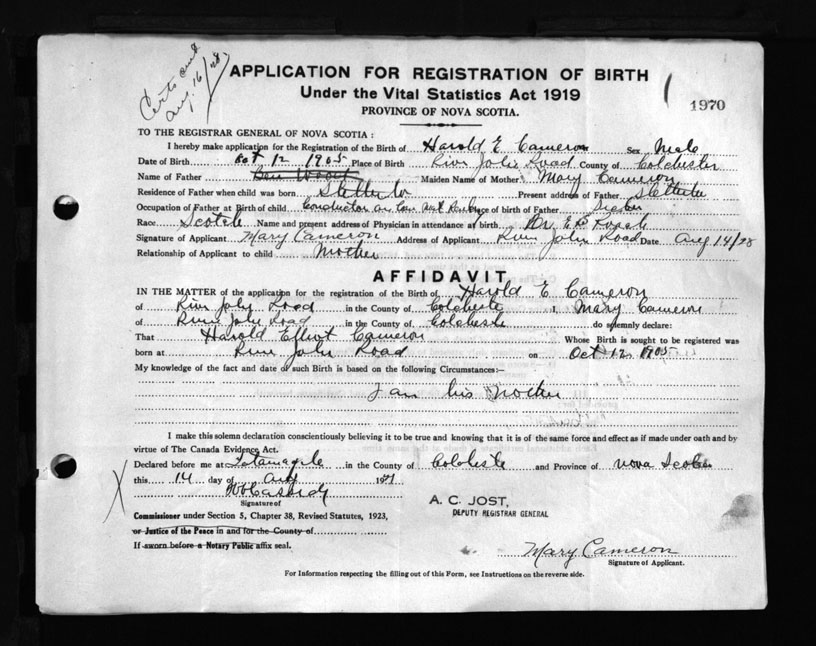 Certs sent
Aug. 16/28
APPLICATION FOR REGISTRATION OF BIRTH
Under the Vital Statistics Act 1919
PROVINCE OF NOVA SCOTIA.
1970
TO THE REGISTRAR GENERAL OF NOVA SCOTIA :
I hereby make application for the Registration of the Birth of Harold E. Cameron Sex Male
Date of Birth Oct 12 1905 Place of Birth River John Road County of Colchester
Name of Father Maiden Name of Mother Mary Cameron
Residence of Father when child was born Stellarton Present address of Father Stellarton
Occupation of Father at Birth of child Conductor on Place of birth of Father
Race Scotch Name and present address of Physician in attendance at birth. Dr.
Signature of Applicant Mary Cameron Address of Applicant River John Road Date Aug 14/28
Relationship of Applicant to child Mother
AFFIDAVIT
IN THE MATTER of the application for the registration of the Birth of Harold E Cameron
of River John Road in the County of Colchester I, Mary Cameron
of River John Road in the County of Colchester do solemnly declare:
That Harold Elliot Cameron Whose Birth is sought to be registered was
born at River John Road on Oct 12 1905
My knowledge of the fact and date of such Birth is based on the following Circumstances:—
I am his Mother
I make this solemn declaration conscientiously believing it to be true and knowing that it is of the same force and effect as if made under oath and by
virtue of The Canada Evidence Act.
Declared before me at Tatamagche in the County of Colchester and Province of Nova Scotia
this 14 day of Aug 192
Signature of
Commissioner under Section 5, Chapter 38, Revised Statutes, 1923,
or Justice of the Peace in and for the County of
If sworn before a Notary Public affix seal.
A. C. JOST,
DEPUTY REGISTRAR GENERAL
Mary Cameron
Signature of Applicant.
For Information respecting the filling out of this Form, see Instructions on the reverse side.